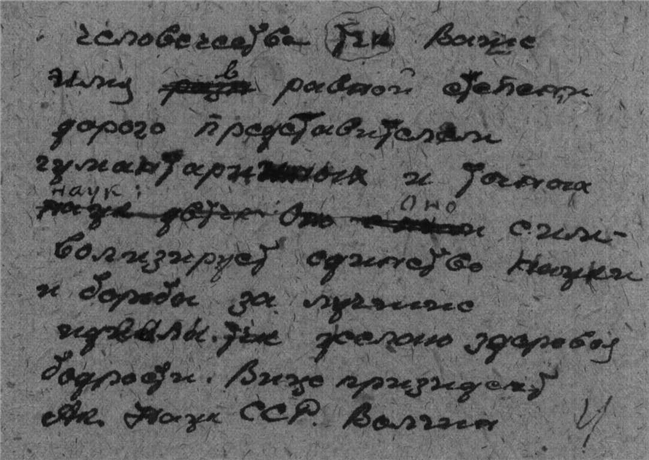 человечества тчк Ваше
имя в равной степени
дорого представителям
гуманитарных и точных
наук. Оно сим-
волизирует единство науки
и борьбы за лучшие
идеалы. тчк желаю здоровья
бодрости. Вице президент
Ак. Наук ССР. Волгин